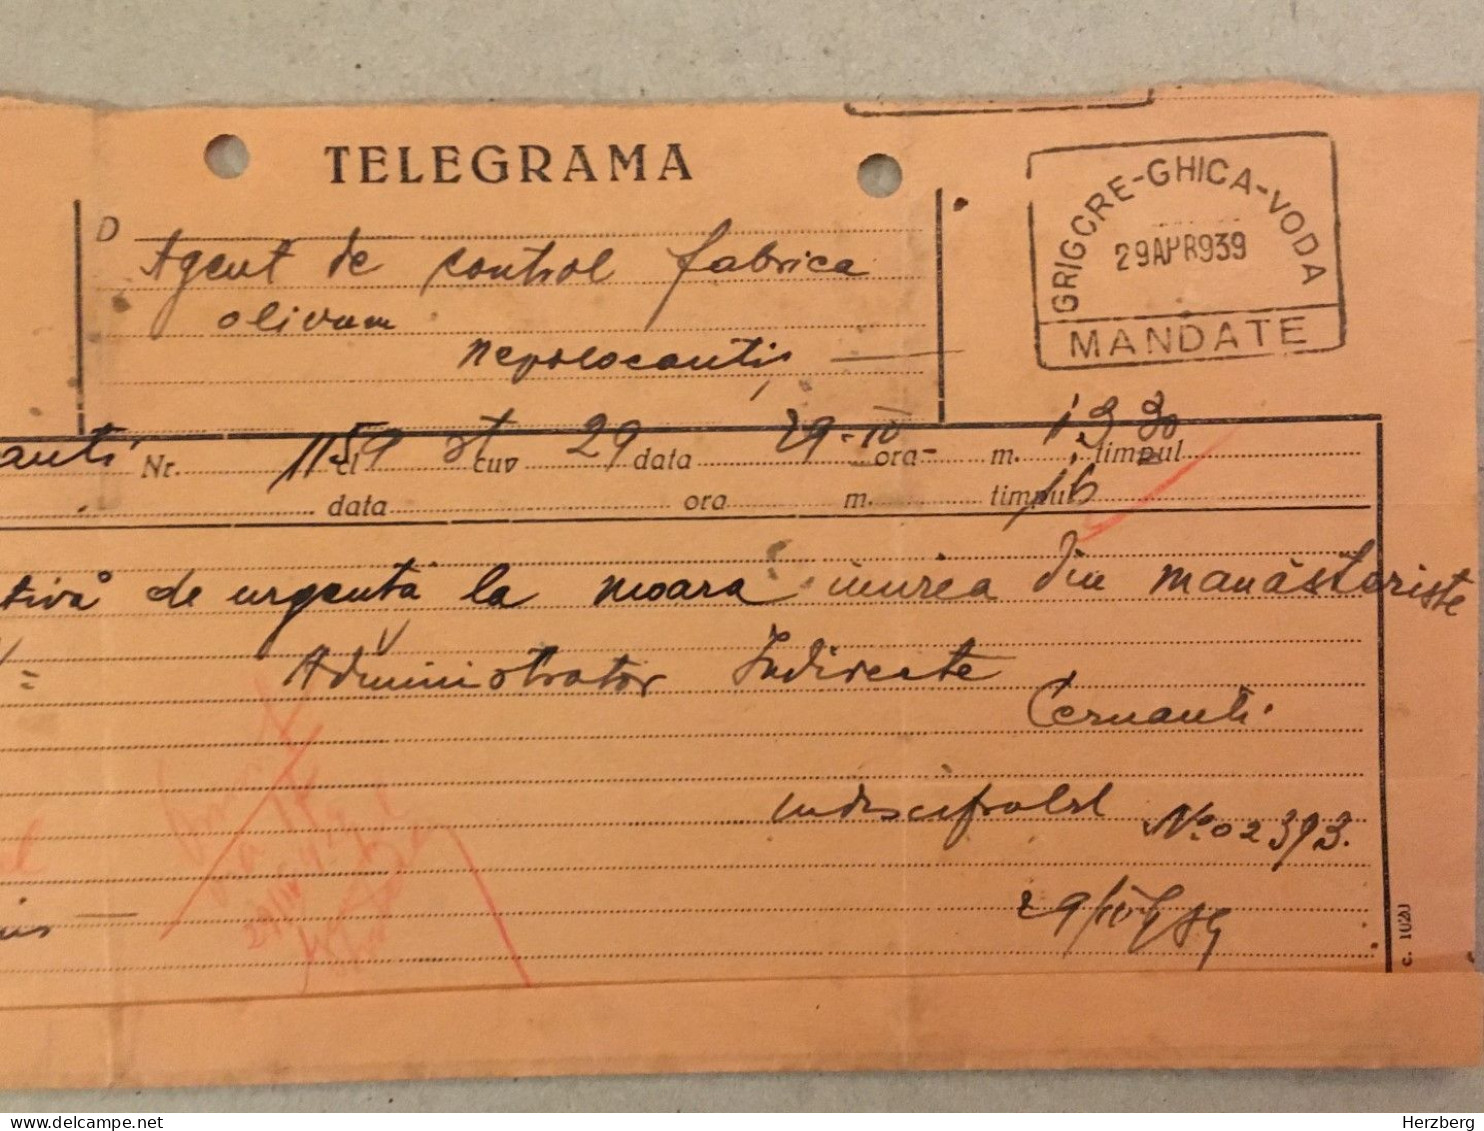 TELEGRAMA
GRIGORE-GHICA-VODA
29APR939
MANDATE
D Agent de control fabrica
olivum
nepolocauti
auti Nr. 1159 ct cuv 29 data 29-IV ora m. 1330 timpul
data ora m. timpul 16
tivă de urgentă la moara din manăstoriste
= Administrator Indirecte
Cernauti
indescifrabil No 02393.
29/IV
c. 1020
Herzberg